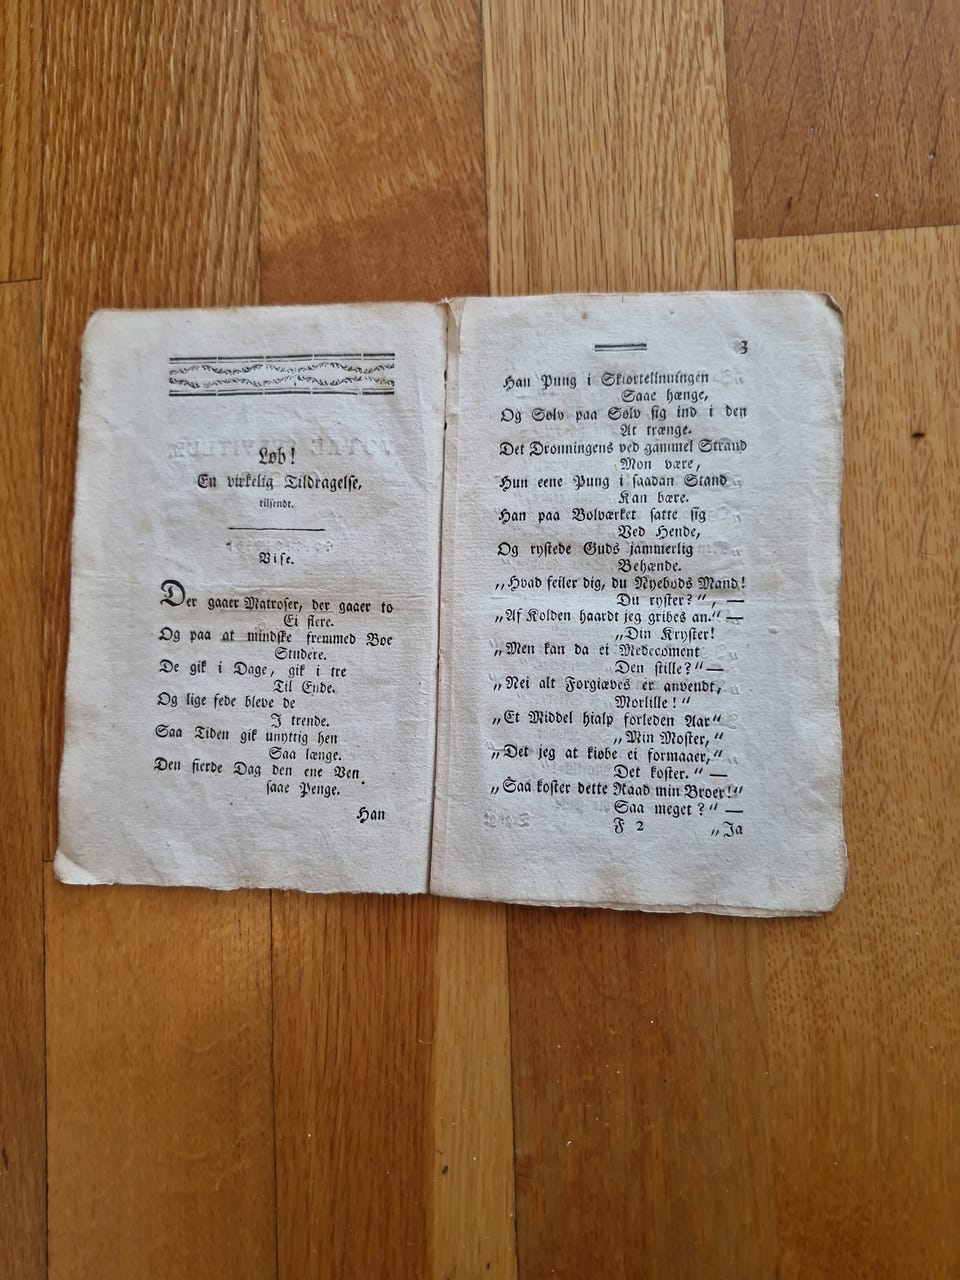 Løb!
En virkelig Tildragelse,
tilsendt.
Vise.
Der gaaer Matroser, der gaaer to
Ei flere.
Og paa at mindske fremmed Boe
Studere.
De gik i Dage, gik i tre
Til Ende.
Og lige fede bleve de
I trende.
Saa Tiden gik unyttig hen
Saa længe.
Den fierde Dag den ene Ven
saae Penge.
Han
3
Han Pung i Skiortelinningen
Saae hænge,
Og Sølv paa Sølv sig ind i den
At trænge.
Det Dronningens ved gammel Strand
Mon være,
Hun eene Pung i saadan Stand
Kan bære.
Han paa Bolværket satte sig
Ved Hende,
Og rystede Guds jammerlig
Behænde.
„Hvad feiler dig, du Nyebods Mand!
Du ryster?“, —
„Af Kolden haardt jeg gribes an.“ —
„Din Kryster!
„Men kan da ei Medecament
Den stille?“ —
„Nei alt Forgiæves er anvendt,
Morlille!“
„Et Middel hialp forleden Aar“
„Min Moster,“
„Det jeg at kiøbe ei formaaer,“
Det koster.“ —
„Saa koster dette Raad min Broer!“
Saa meget?“ —
F 2
„Ja